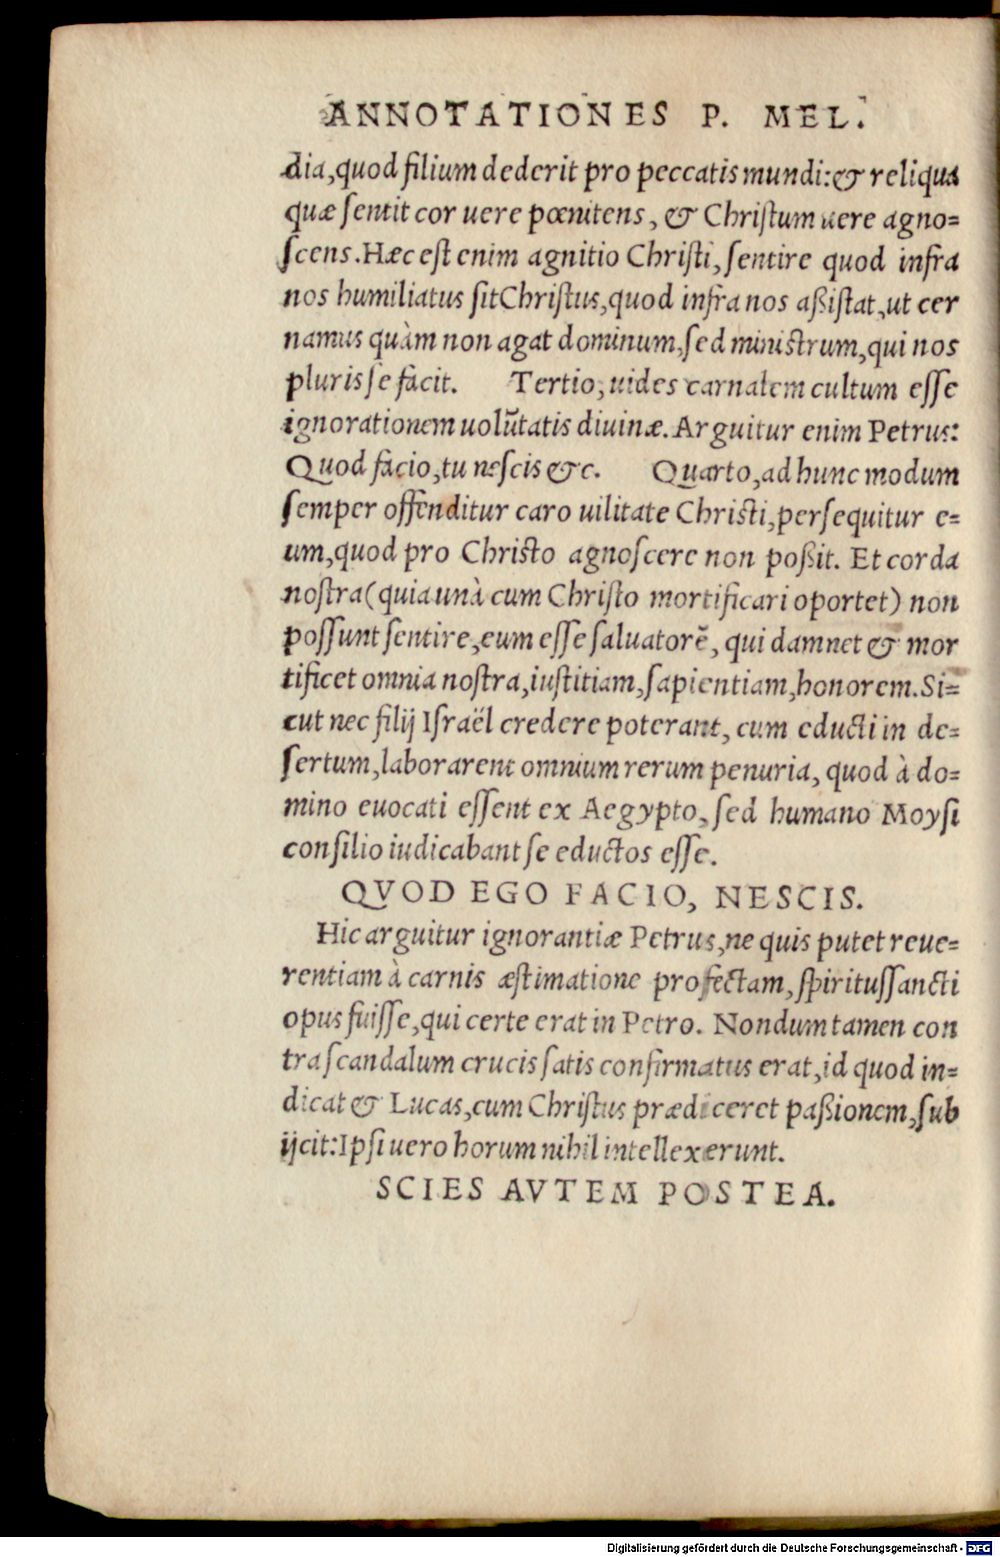 ANNOTATIONES P. MEL.
dia,quod filium dederit pro peccatis mundi:& reliqua
quæ sentit cor uere pœnitens, & Christum uere agno=
scens.Hæc est enim agnitio Christi, sentire quod infra
nos humiliatus sit Christus,quod infra nos aßistat,ut cer
namus quàm non agat dominum,sed ministrum,qui nos
pluris se facit. Tertio, uides carnalem cultum esse
ignorationem uolũtatis diuinæ. Arguitur enim Petrus:
Quod facio,tu nescis &c. Quarto,ad hunc modum
semper offenditur caro uilitate Christi,persequitur e=
um,quod pro Christo agnoscere non poßit. Et corda
nostra(quia unà cum Christo mortificari oportet) non
possunt sentire,eum esse saluatorẽ, qui damnet & mor
tificet omnia nostra,iustitiam,sapientiam,honorem.Si=
cut nec filij Israël credere poterant, cum educti in de=
sertum,laborarent omnium rerum penuria, quod à do=
mino euocati essent ex Aegypto, sed humano Moysi
consilio iudicabant se eductos esse.
QVOD EGO FACIO, NESCIS.
Hic arguitur ignorantiæ Petrus,ne quis putet reue=
rentiam à carnis æstimatione profectam, spiritussancti
opus fuisse,qui certe erat in Petro. Nondum tamen con
tra scandalum crucis satis confirmatus erat,id quod in=
dicat & Lucas,cum Christus prædiceret paßionem,sub
ijcit:Ipsi uero horum nihil intellexerunt.
SCIES AVTEM POSTEA.
Digitalisierung gefördert durch die Deutsche Forschungsgemeinschaft - DFG